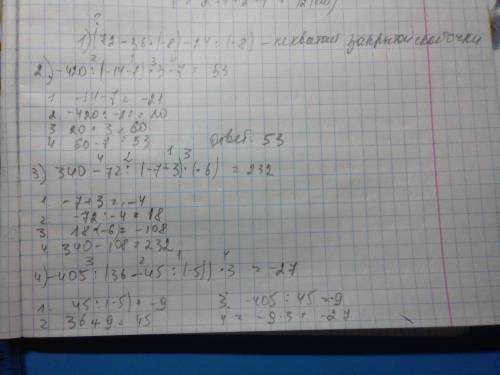 1) (72 - 36 · (-8) - 14 : (-8) - нехватает закрытой скобочки
2) -420 : (-14-7) · 3 - 7 = 53
1 -14-7 = -21
2 -420 : -21 = 20
3 20 : 3 = 60
4 60 - 7 = 53 ответ: 53
3) 340 - 72 : (-7+3) · (-6) = 232
1 -7+3 = -4
2 -72 : -4 = 18
3 18 · (-6) = -108
4 340 - 108 = 232
4) -405 : (36 - 45 : (-5)) · 3 = -27
1 45 : (-5) = -9 3 -405 : 45 = -9
2 36+9 = 45 4 = -9·3 = -27